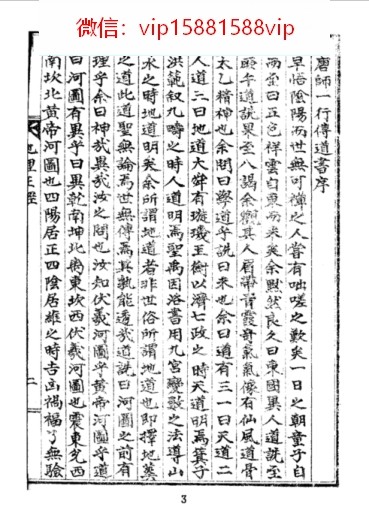 微信：vip15881588vip
唐師一行傳道書序
早悟陰陽兩世無可擇之人嘗有咄嗟之歎矣一日之朝童子自
兩至曰五色祥雲自東南來矣余默然良久曰東國異人道詵至
午道詵果至入謁余觀其人眉帶霞奇氣有仙風道骨
太乙精神也余問曰學道乎詵曰來也余曰道有三一曰天道二
人道三曰地道大舜有璇璣玉衡以濟七政之時天道明焉箕子
洪範叙九疇之時人道明焉聖禹因洛書用九宮變數之法導山
水之時地道明矣余所謂地道者非世俗所謂地道也即擇地葬
之道此道聖無論焉世無傳焉其孰能透哉道詵曰河圖之前有
理乎余曰神哉異哉汝之問也汝知伏羲河圖乎黃帝河圖乎道
曰河圖有異乎曰異乾南坤北离東坎西伏羲河圖也震東兌西
南坎北黃帝河圖也四陽居正四陰居維之時吉凶禍福了無驗
二
3